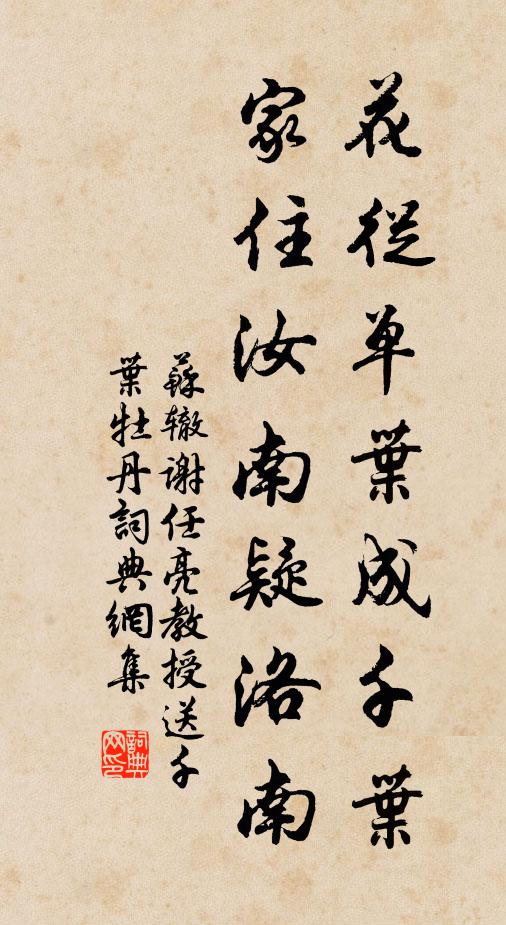 花從单葉成千葉
家住汝南疑洛南
蘇辙谢任亮教授送千
葉牡丹詞典網集
詞典
网印